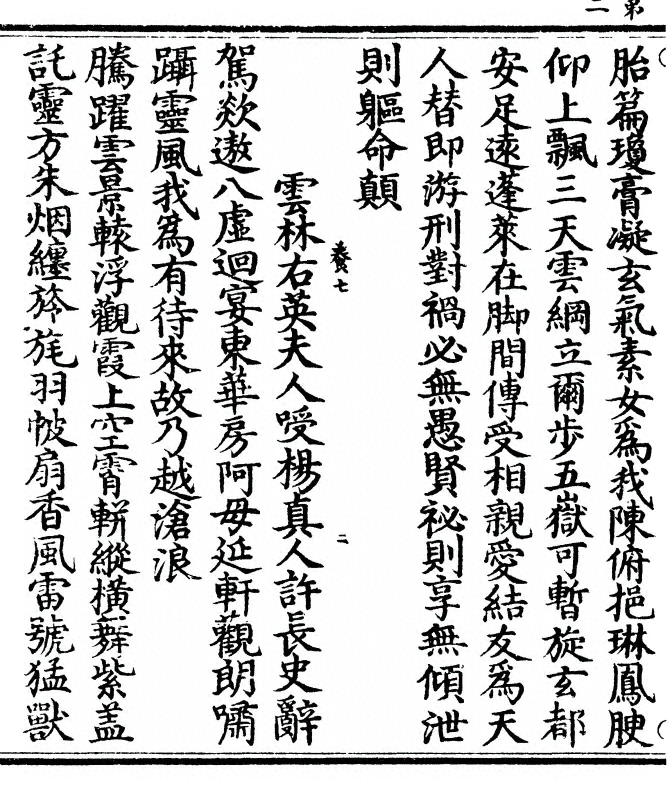 第二
胎篇瓊膏凝玄氣素女為我陳俯挹琳鳳腴
仰上飄三天雲綱立爾步五嶽可暫旋玄都
安足遠蓬萊在脚間傳受相親愛結友為天
人替即游刑對禍必無愚賢祕則享無傾泄
則軀命顛
養七
雲林右英夫人喻楊真人許長史辭
二
駕欻遨八虛迴宴東華房阿母延軒觀朗嘯
躡靈風我為有待來故乃越滄浪
騰躍雲景轅浮觀霞上空霄軿縱橫舞紫盖
託靈方朱烟纏旍旄羽帔扇香風雷號猛獸